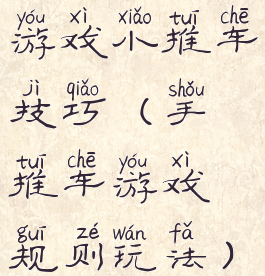 yóu xì xiǎo tuī chē
游戏小推车
jì qiǎo shǒu
技巧（手
tuī chē yóu xì
推车游戏
guī zé wán fǎ
规则玩法）